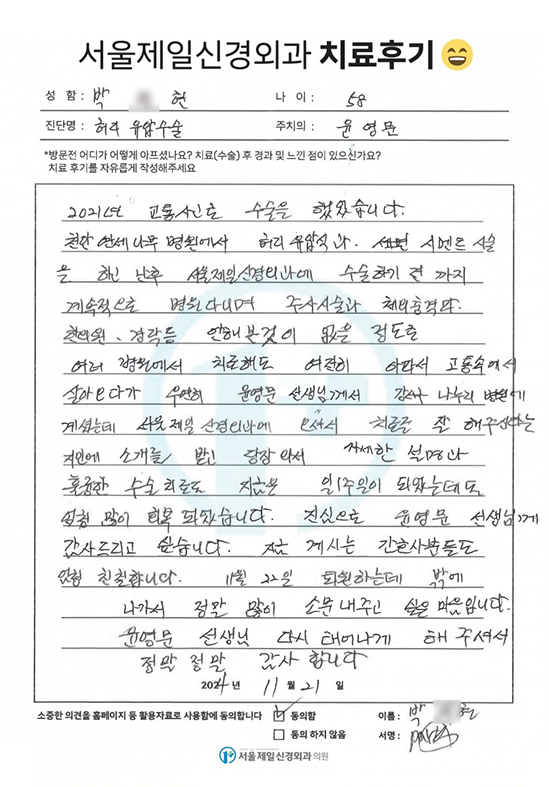 서울제일신경외과 치료후기
성 함 : 박 현 나 이 : 58
진단명 : 허리 유합수술 주치의 : 윤영문
*방문전 어디가 어떻게 아프셨나요? 치료(수술) 후 경과 및 느낀 점이 있으신가요?
치료 후기를 자유롭게 작성해주세요
2021년 교통사고로 수술을 했었습니다.
천안 연세나무 병원에서 허리 유합식과. 시멘트 시술
을 하고 난후 서울제일신경외과에 수술하기 전 까지
계속적으로 병원다니며 주사시술과 체외충격파.
한의원. 경락등 안해본것이 없을 정도로
여러 병원에서 치료해도 여전히 아파서 고통속에서
살아오다가 우연히 윤영문 선생님께서 나누리 병원에
계셨는데 서울제일신경외과에 오셔서 치료를 잘 해주신다는
지인에 소개를 받고 당장 와서 자세한 설명과
훌륭한 수술 치료로 지금은 일주일이 되었는데도
엄청 많이 회복 되었습니다. 진심으로 윤영문 선생님께
감사드리고 싶습니다. 지금 계시는 간호사분들도
엄청 친절합니다. 11월 22일 퇴원하는데 밖에
나가서 정말 많이 소문내주고 싶은 마음입니다.
윤영문 선생님 다시 태어나게 해 주셔서
정말 정말 감사 합니다
2024년 11월 21일
소중한 의견을 홈페이지 등 활용자료로 사용함에 동의합니다 동의함 이름 : 박 현
동의 하지 않음 서명 :
서울제일신경외과의원